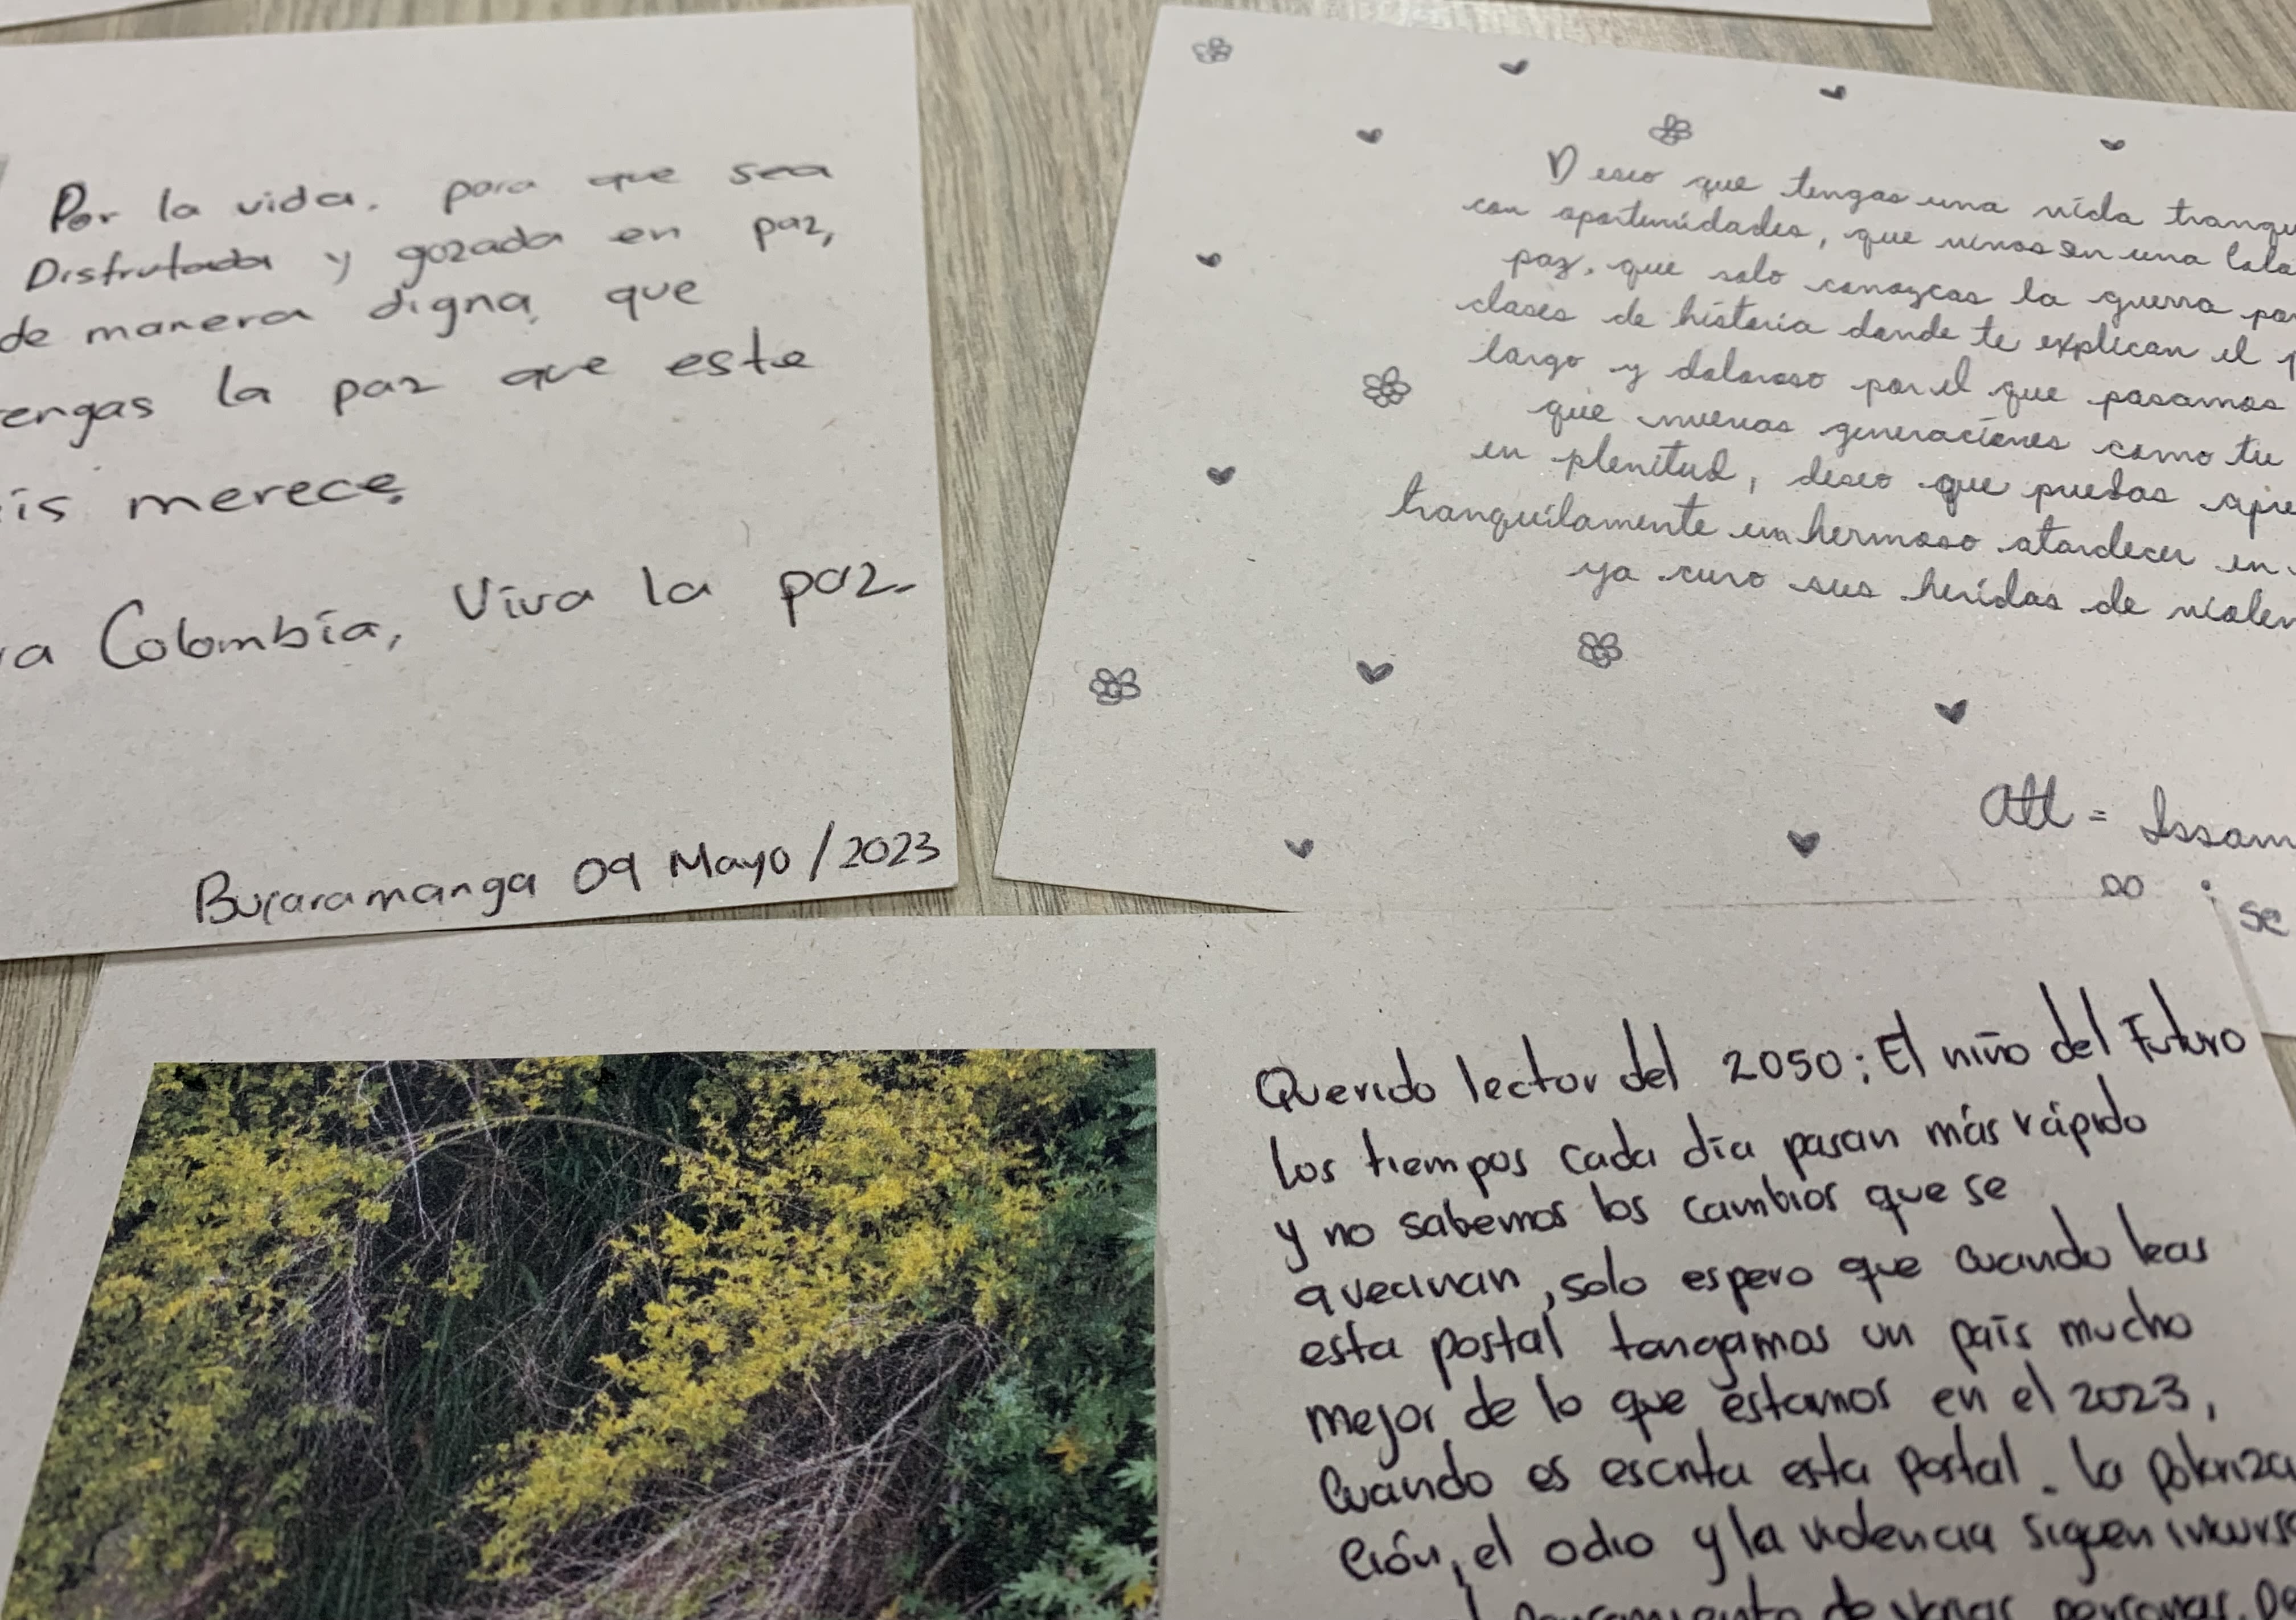 Por la vida. para que sea
Disfrutada y gozada en paz,
de manera digna, que
engas la paz que este
is merece
a Colombia, Viva la paz.
Bucaramanga 09 Mayo/2023
Deseo que tengas una vida tranqu
con oportunidades, que vivas en una
paz, que solo conozcas la guerra por
clases de historia donde te explican el p
largo y doloroso por el que pasamos
que nuevas generaciones como tu
en plenitud, deseo que puedas apre
tranquilamente un hermoso atardecer en
ya curo sus heridas de violen
Att = Issam
se
Querido lector del 2050; El niño del Futuro
los tiempos cada día pasan más rápido
y no sabemos los cambios que se
avecinan, solo espero que cuando leas
esta postal tengamos un país mucho
mejor de lo que estamos en el 2023,
Cuando es escrita esta postal. la polariza
ción, el odio y la violencia siguen incurs
de varias personas